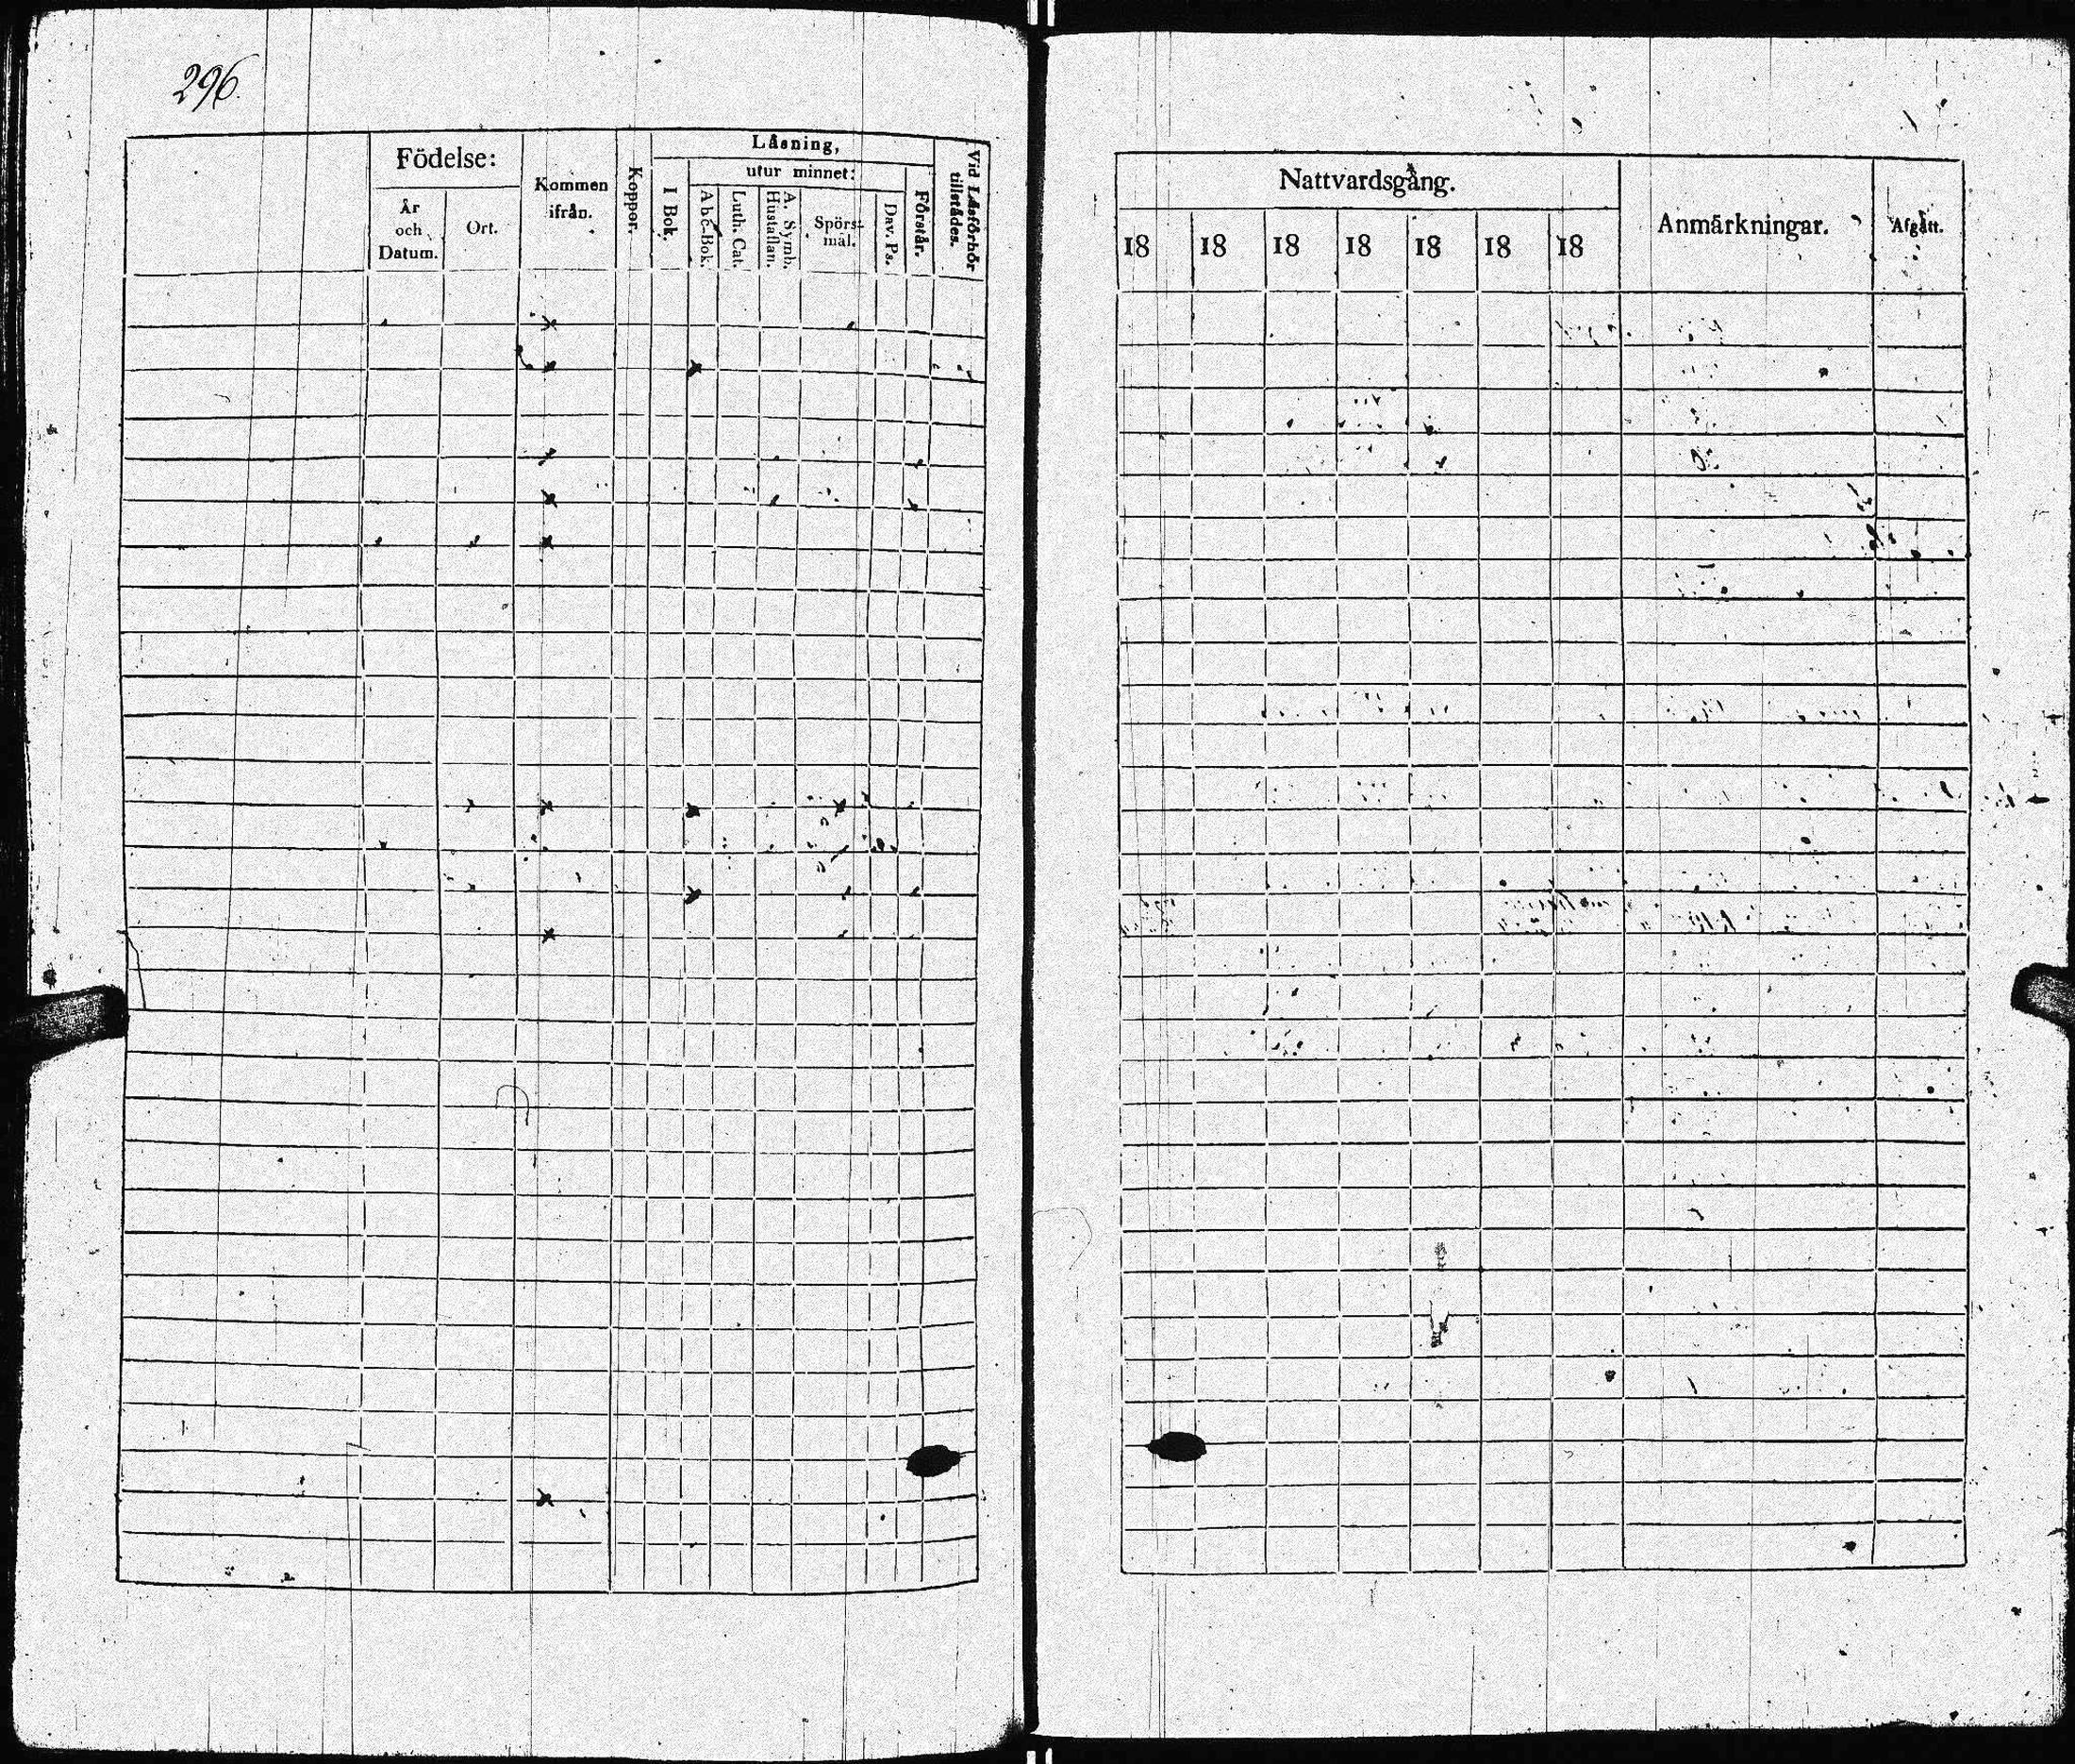 296.
Födelse:
År
och
Datum.
Ort.
Kommen
ifrån.
Koppor.
Läsning,
I Bok.
utur minnet:
Abc-Bok.
Luth. Cat.
A. Symb.
Hustaflan.
Spörs-
mål.
Dav. Ps.
Förstår.
Vid Läsförhör
tillstädes.
Nattvardsgång.
18 18 18 18 18 18 18
Anmärkningar.
Afgått.